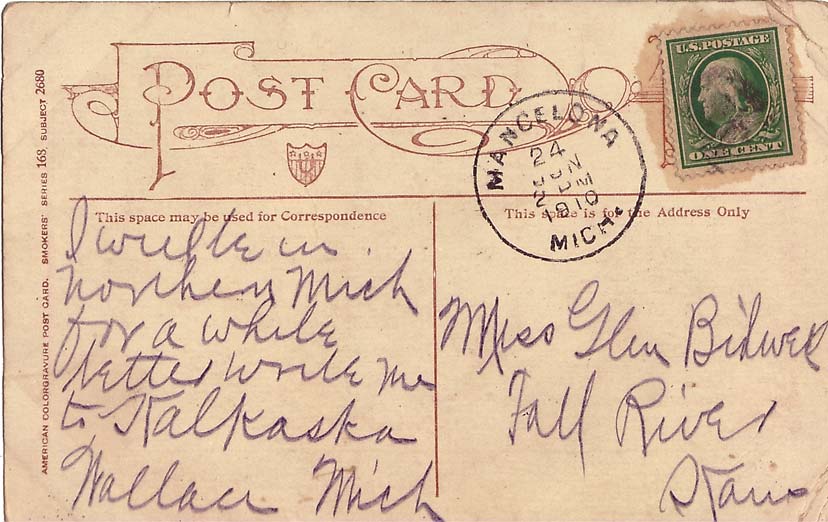 POST CARD
U.S. POSTAGE
ONE CENT
MANCELONA
24
JUN
2 PM
1910
MICH.
This space may be used for Correspondence
This space is for the Address Only
I will be in
northern Mich
for a while
better write me
to Kalkaska
Wallace Mich
Miss Glen Bidwell
Fall River
Kans
AMERICAN COLORGRAVURE POST CARD. SMOKERS' SERIES 168, SUBJECT 2680